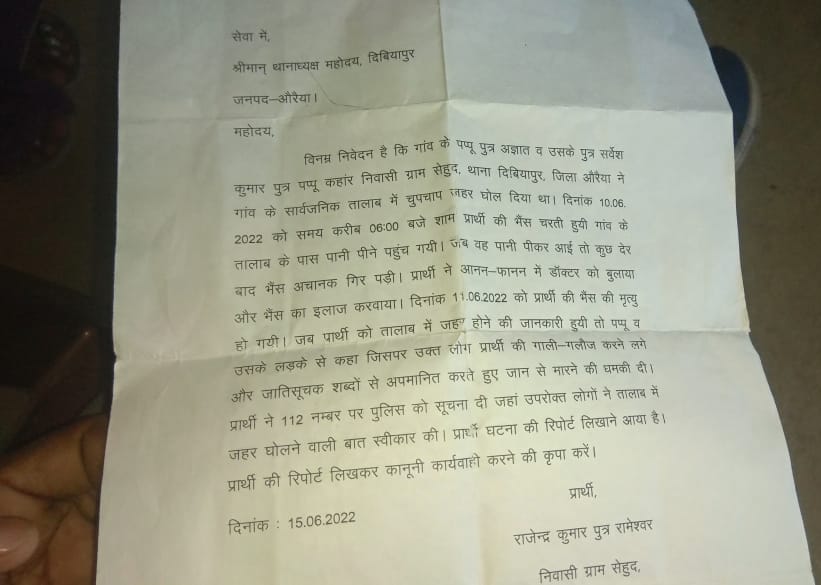 सेवा में,
श्रीमान् थानाध्यक्ष महोदय, दिबियापुर
जनपद–औरैया।
महोदय,
विनम्र निवेदन है कि गांव के पप्पू पुत्र अज्ञात व उसके पुत्र सर्वेश
कुमार पुत्र पप्पू कहांर निवासी ग्राम सेहुद, थाना दिबियापुर, जिला औरैया ने
गांव के सार्वजनिक तालाब में चुपचाप जहर घोल दिया था। दिनांक 10.06.
2022 को समय करीब 06:00 बजे शाम प्रार्थी की भैंस चरती हुयी गांव के
तालाब के पास पानी पीने पहुंच गयी। जब वह पानी पीकर आई तो कुछ देर
बाद भैंस अचानक गिर पड़ी। प्रार्थी ने आनन–फानन में डॉक्टर को बुलाया
और भैंस का इलाज करवाया। दिनांक 11.06.2022 को प्रार्थी की भैंस की मृत्यु
हो गयी। जब पार्थी को तालाब में जहर होने की जानकारी हुयी तो पप्पू व
उसके लड़के से कहा जिसपर उक्त लोग प्रार्थी की गाली–गलौज करने लगे
और जातिसूचक शब्दों से अपमानित करते हुए जान से मारने की धमकी दी।
प्रार्थी ने 112 नम्बर पर पुलिस को सूचना दी जहां उपरोक्त लोगों ने तालाब में
जहर घोलने वाली बात स्वीकार की। प्रार्थी घटना की रिपोर्ट लिखाने आया है।
प्रार्थी की रिपोर्ट लिखकर कानूनी कार्यवाही करने की कृपा करें।
प्रार्थी,
दिनांक : 15.06.2022
राजेन्द्र कुमार पुत्र रामेश्वर
निवासी ग्राम सेहुद,